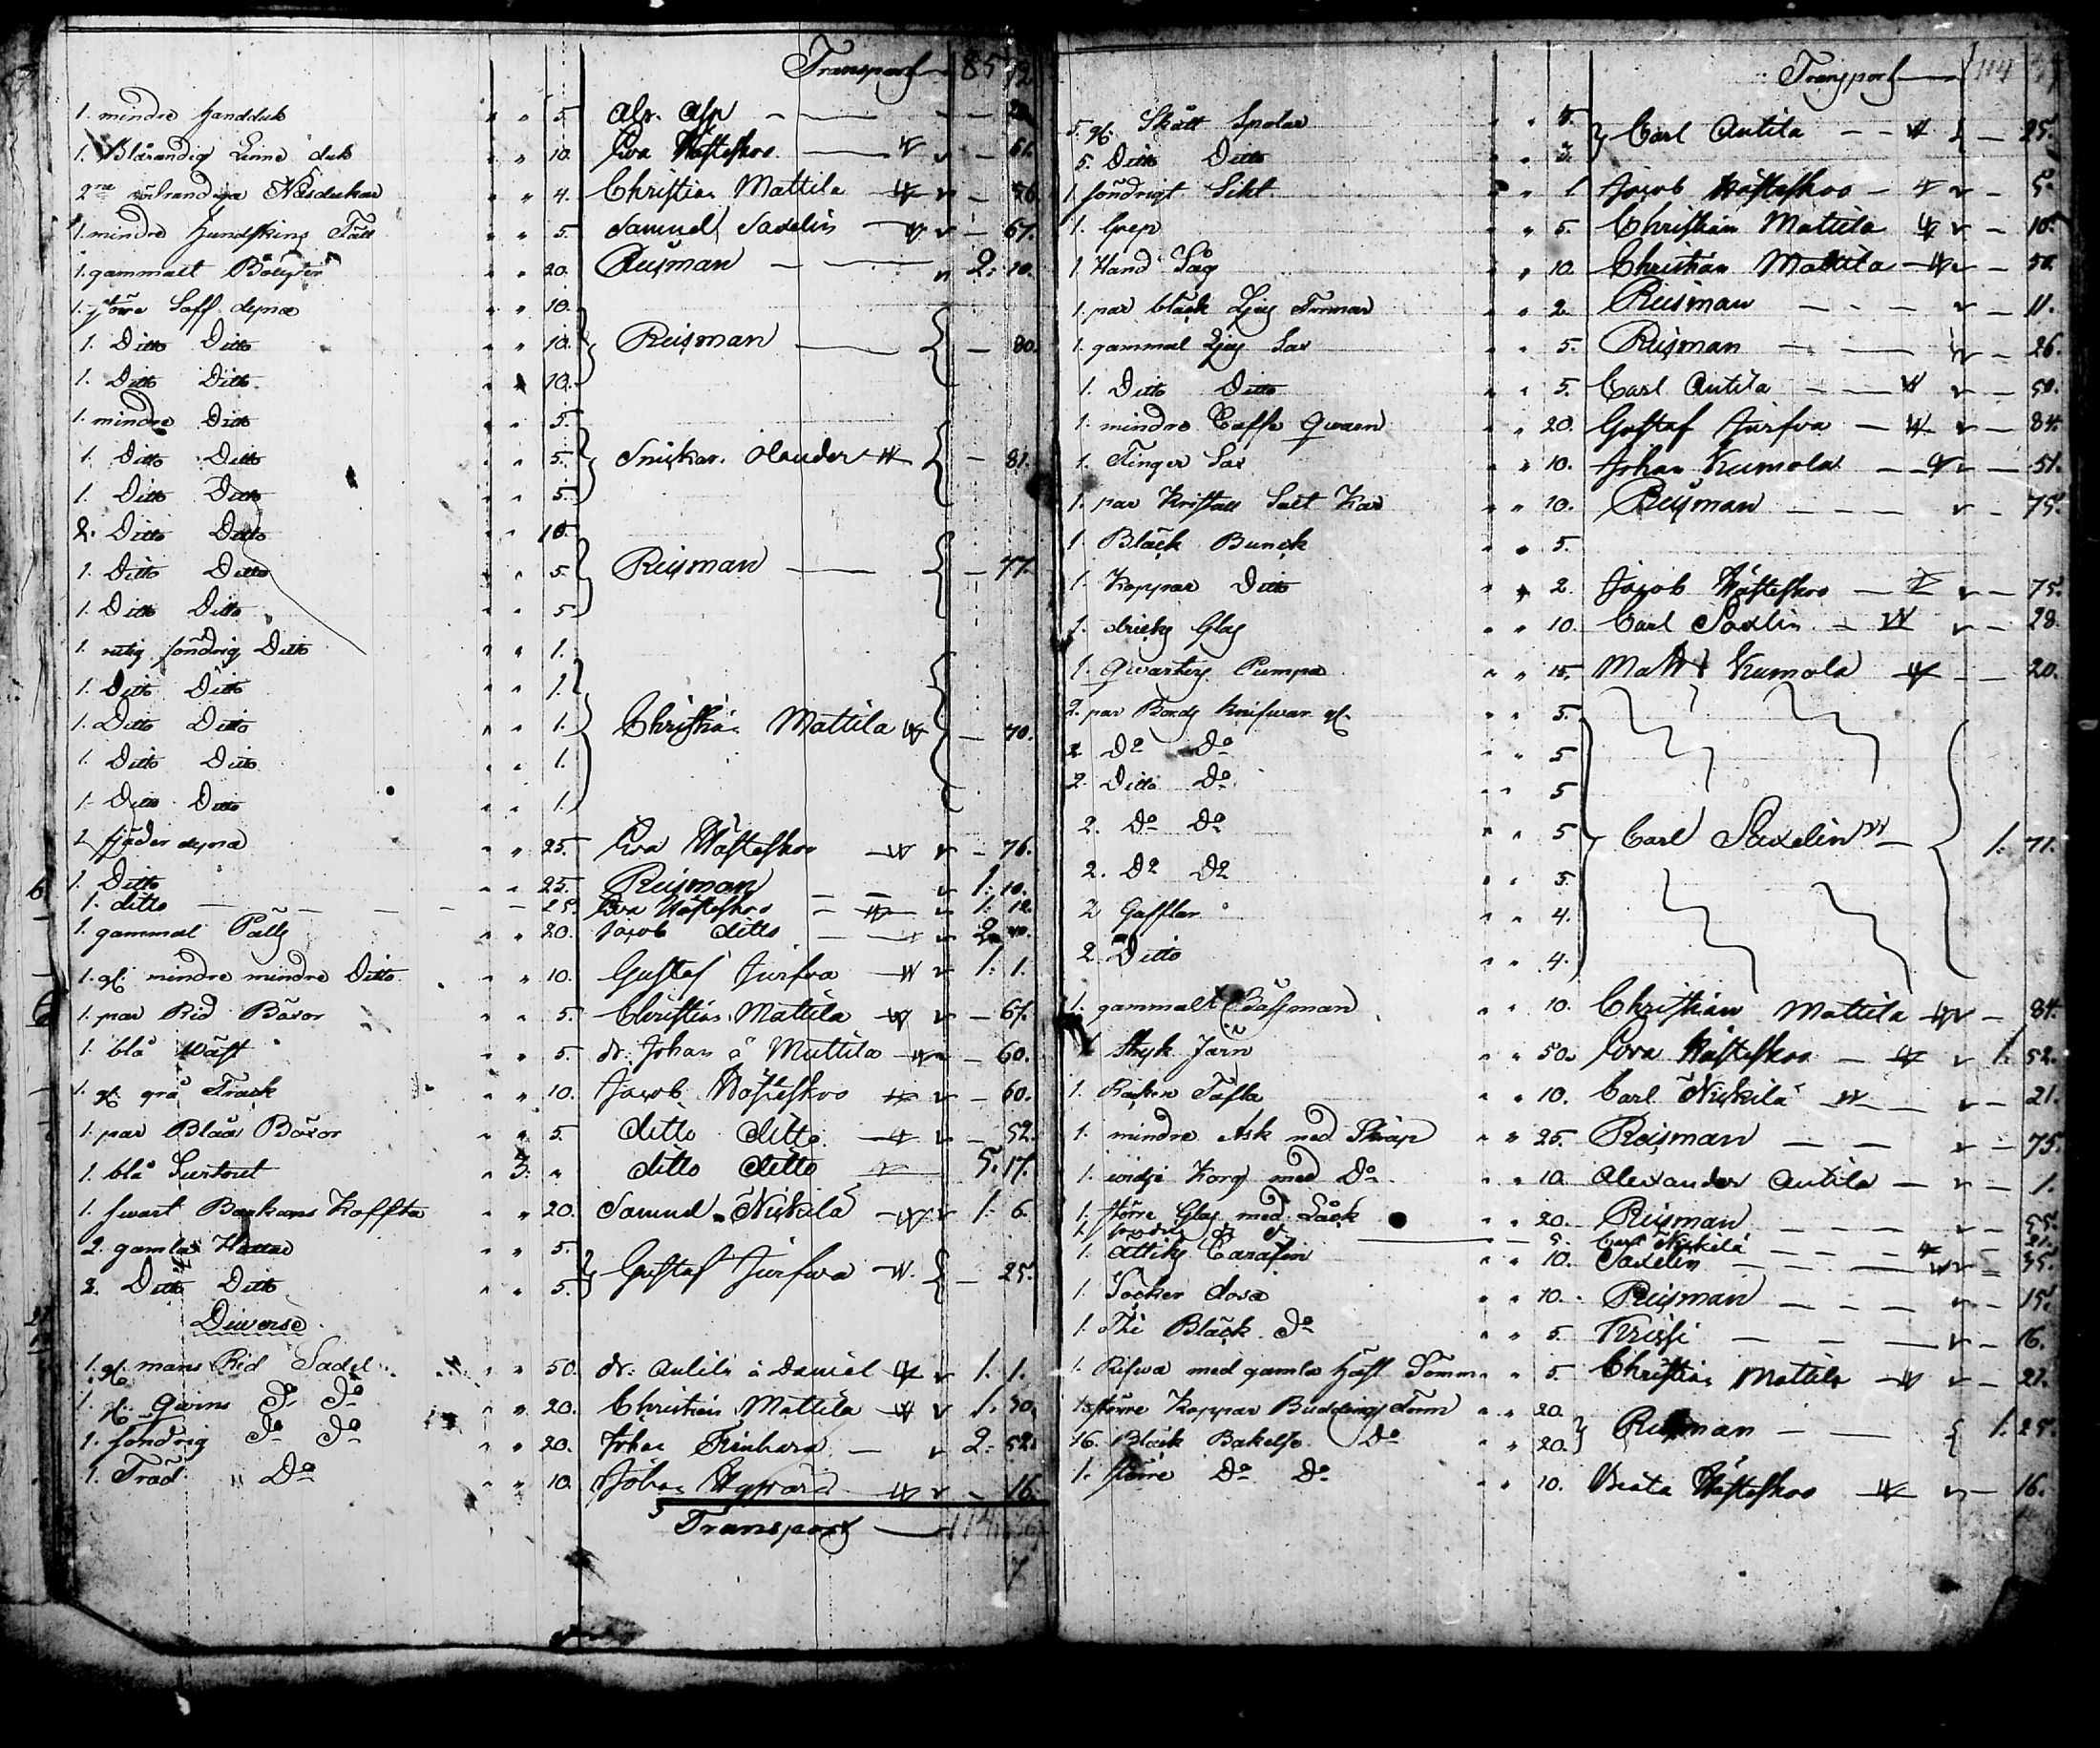 Transport 85 12
1. mindre Handduk " " 5. Alr. Asp
1. Blårandig Linne duk " " 10. Eva Wästeskoo — 61.
2ne rödrandiga Näsdukar " " 4. Christian Mattila — 56
1. mindre Hundskins Fäll " " 5. Samuel Saxelin — 67.
1. gammalt Bolster " " 20. Reisman — 2. 10.
1. större Soff dyna " " 10.
1. Ditto Ditto " " 10. Reisman — 80.
1. Ditto Ditto " " 10.
1. mindre Ditto " " 5.
1. Ditto Ditto " " 5. Snickar. Olander — 81.
1. Ditto Ditto " " 5.
2. Ditto Ditto " " 10.
1. Ditto Ditto " " 5. Reisman — 77.
1. Ditto Ditto " " 5
1. söndrig Ditto " " 1.
1. Ditto Ditto " " 1.
1. Ditto Ditto " " 1. Christian Mattila — 70.
1. Ditto Ditto " " 1.
1. Ditto Ditto " " 1.
1 fjäder dyna " " 25. Eva Wästeskoo — 76.
1. Ditto " " 25. Reisman — 1. 10.
1. ditto — 25. Eva Wästeskoo — 1. 12.
1. gammal Päls " " 20. Jacob ditto — 2.
1. gl. mindre mindre Ditto " " 10. Gustaf Jurfva — 1. 1.
1. par Rid Böxor " " 5. Christian Mattila — 67.
1. blå Wäst " " 5. dr. Johan å Mattila — 60.
1. gl. grå Frack " " 10. Jacob Wästeskoo — 60.
1. par Blåa Böxor " " 5. ditto ditto — 52.
1. blå Surtout " 3. " ditto ditto 5. 17.
1. swart Barkans Koffta " " 20. Samuel Niskila — 1. 6.
2. gamla Hattar " " 5.
2. Ditto Ditto " " 5. Gustaf Jurfva — 25.
Diverse.
1. gl. mans Rid Sadel " " 50. dr. Antila å Daniel 1. 1.
1. gl. Qvins Do Do " " 20. Christian Mattila 1. 30.
1. söndrig Do Do " " 20. Johan 2. 52.
1. Träd " Do " " 10. Johan — 16.
Transport
Transport 114
5. gl. Skått Spolar " " 5.
5. Ditto Ditto " " 3. Carl Antila — 25.
1 söndrigt Sikt " " 1 Jacob Wästeskoo — 5.
1. Grep " " 5. Christian Mattila — 10.
1. Hand Såg " " 10. Christian Mattila — 50.
1. par bläck Ljus Formar " " 2. Reisman — 11.
1. gammal Ljus Sax " " 5. Reisman — 26.
1. Ditto Ditto " " 5. Carl Antila — 50.
1. mindre Caffe Qwarn " " 20. Gustaf Jurfva — 84.
1. Finger Sax " " 10. Johan Kumola — 51.
1. par Kristall Salt Kar " " 10. Reisman — 75.
1. Bläck Bunck " " 5.
1. Koppar Ditto " " 2. Jacob Wästeskoo — 75.
1. dricks Glas " " 10. Carl Saxlin — 28.
1. Qwarters Pumpa " " 15. Matts Kumola — 20.
2. par Bords Knifwar gl. " " 5.
2 Do Do " " 5
2. Ditto Do " " 5
2. Do Do " " 5 Carl Saxelin — 1. 71.
2. Do Do " " 5.
2 Gafflar " " 4.
2. Ditto " " 4.
1. gammalt Bässman " " 10. Christian Mattila — 84.
1 Stryk Järn " " 50. Eva Wästeskoo — 1. 52.
1. Räkne Tafla " " 10. Carl Niskila — 21.
1. mindre Ask med Skräp " " 25. Reisman — 75.
1. widje Korg med Do " " 10. Alexander Antila — 1.
1. större Glas med Låck " " 20. Reisman — 55.
— 5. Carl Niskila — 21.
1. Ättiks Carafin " " 10. Saxelin — 35.
1. Socker dosa " " 10. Reisman — 15.
1. Thé Bläck Do " " 5. Krissi — 16.
1. Rifwa med gamla Häst Sömm " " 5. Christian Mattila — 27.
1. större Koppar Buddings Form " " 20.
16. Bläck Bakelse Do " " 20. Reisman — 1. 25.
1. större Do Do " " 10. Beata Wästeskoo — 16.